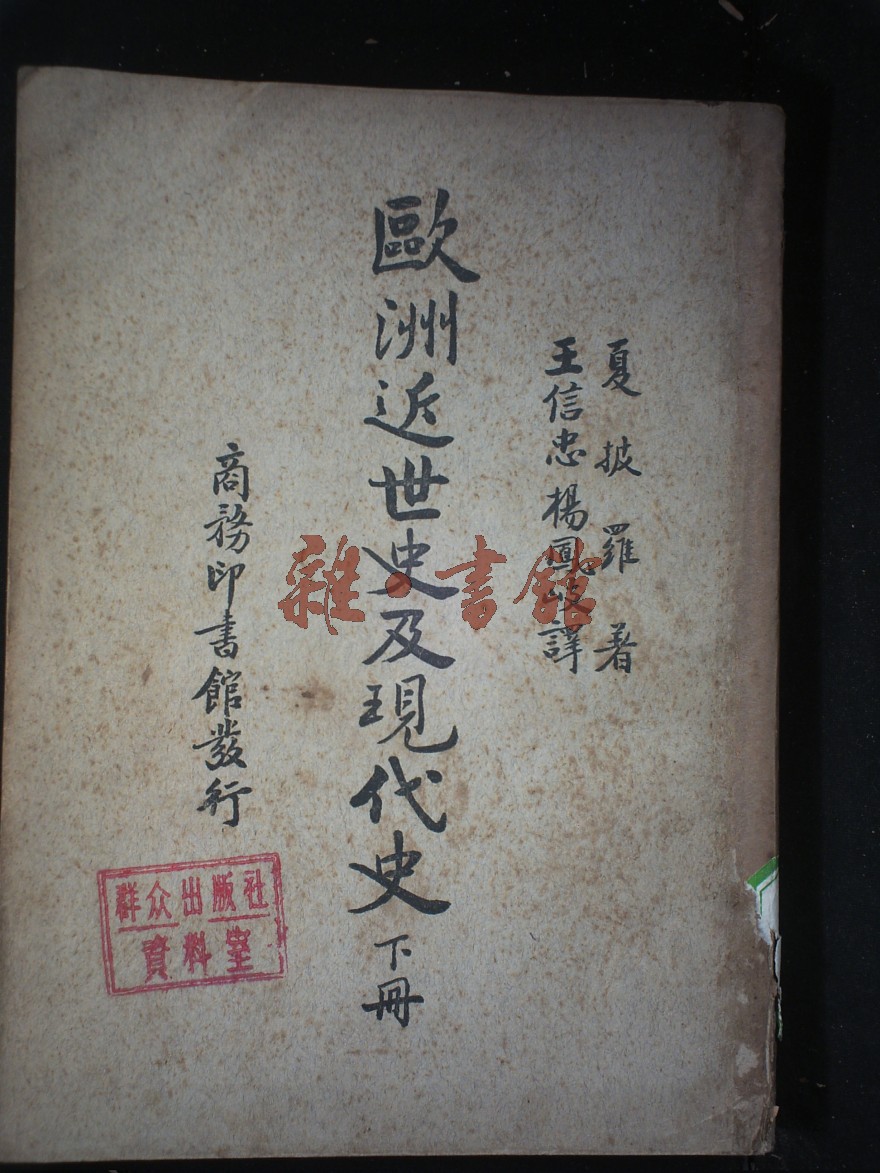 夏披羅著
王信忠楊鳳岐譯
歐洲近世史及現代史下冊
商務印書館發行
群众出版社
資料室
雜·書館